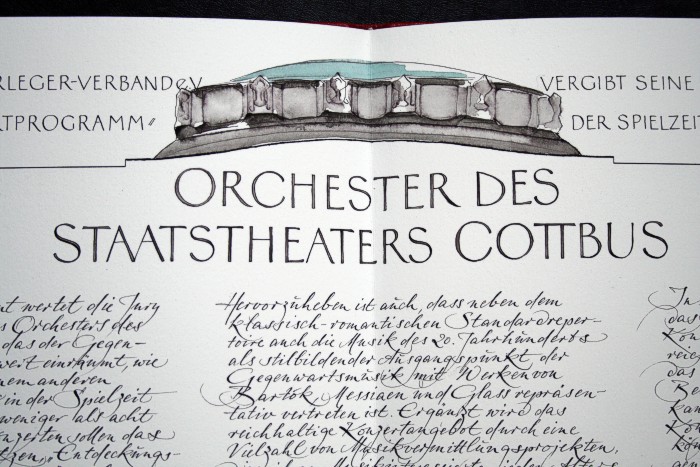 RLEGER-VERBAND eV
VERGIBT SEINE
RTPROGRAMM"
DER SPIELZEIT
ORCHESTER DES
STAATSTHEATERS COTTBUS
nt wertet die Jury
s Orchesters des
das der Gegen-
wert einräumt, wie
nem anderen
in der Spielzeit
weniger als acht
nzerten sollen das
tzen, "Entdeckungs-
Hervorzuheben ist auch, dass neben dem
klassisch-romantischen Standardreper-
toire auch die Musik des 20. Jahrhunderts
als stilbildender Ausgangspunkt der
Gegenwartsmusik mit Werken von
Bartók Messiaen und Glass repräsen-
tativ vertreten ist. Ergänzt wird das
reichhaltige Konzertangebot durch eine
Vielzahl von Musikvermittlungsprojekten,
In
das
Kon
reic
das
Be
Ko